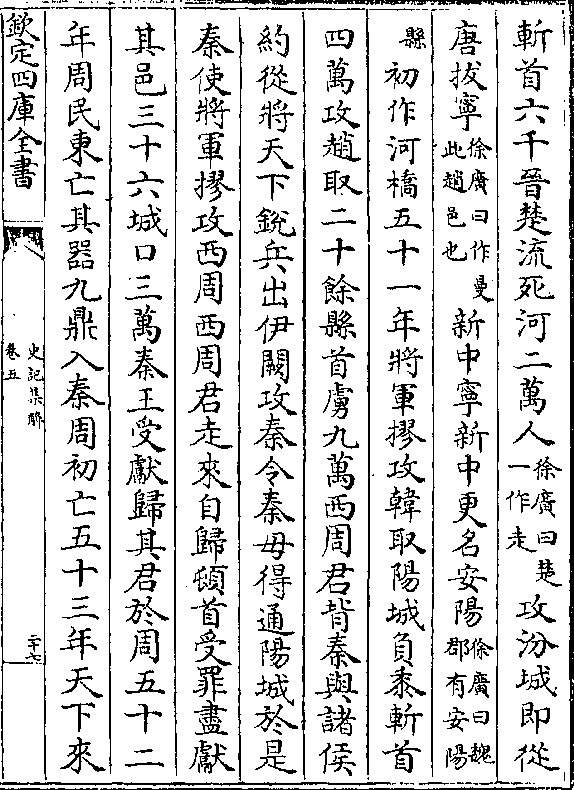 斬首六千晉楚流死河二萬人徐廣曰楚一作走攻汾城即從
唐拔寧徐廣曰作曼此趙邑也新中寧新中更名安陽徐廣曰魏郡有安陽
縣初作河橋五十一年將軍摎攻韓取陽城負黍斬首
四萬攻趙取二十餘縣首虜九萬西周君背秦與諸侯
約從將天下銳兵出伊闕攻秦令秦毋得通陽城於是
秦使將軍摎攻西周西周君走來自歸頓首受罪盡獻
其邑三十六城口三萬秦王受獻歸其君於周五十二
年周民東亡其器九鼎入秦周初亡五十三年天下來
欽定四庫全書
史記集解
卷五
二十七